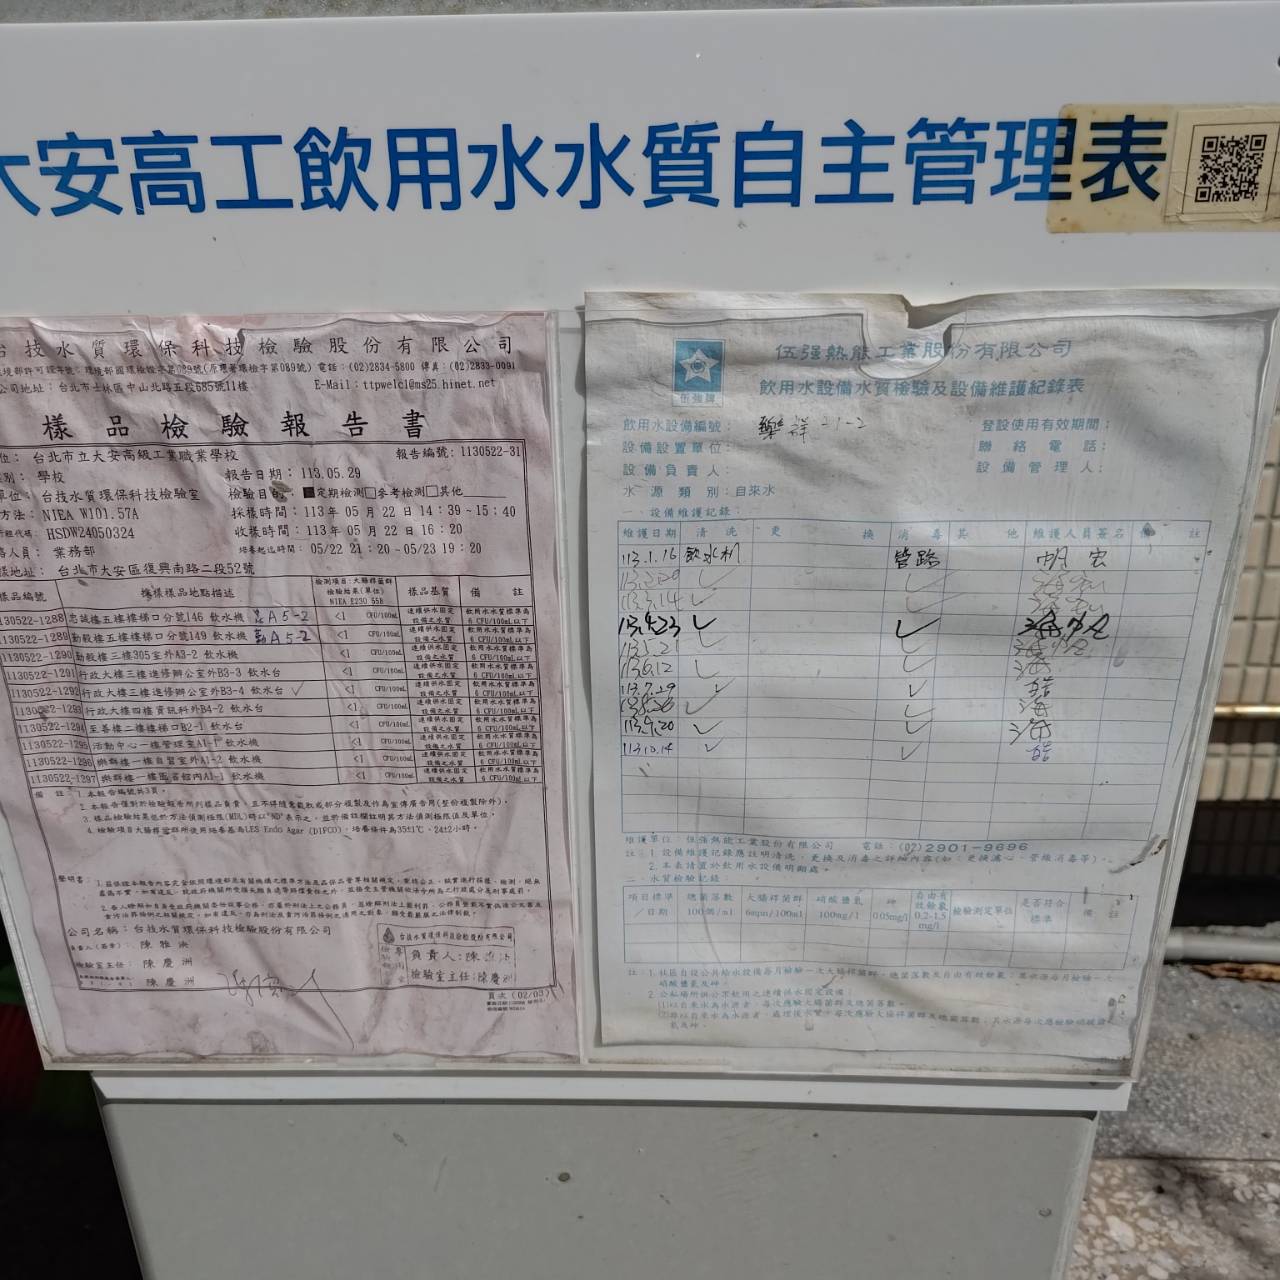 大安高工飲用水水質自主管理表
台技水質環保科技檢驗股份有限公司
環境部許可證字號:環境部國環檢證字第089號(原環署環檢字第089號) 電話:(02)2834-5800 傳真:(02)2833-0091
公司地址:台北市士林區中山北路五段685號11樓 E-Mail:ttpwelcl@ms25.hinet.net
樣品檢驗報告書
台北市立大安高級工業職業學校 報告編號:1130522-31
學校 報告日期:113.05.29
台技水質環保科技檢驗室 檢驗目的:■定期檢測□參考檢測□其他
方法:NIEA W101.57A 採樣時間:113 年 05 月 22 日 14:39~15:40
HSDW24050324 收樣時間:113 年 05 月 22 日 16:20
業務部 培養起迄時間:05/22 21:20~05/23 19:20
台北市大安區復興南路二段52號
樣品編號 採樣樣品地點描述 檢測項目:大腸桿菌群 檢驗結果(單位) NIEA E230.55B 樣品基質 備註
1130522-1288 忠誠樓五樓樓梯口分號146 飲水機 A5-2 <1 CFU/100mL 連續供水固定設備之水質 飲用水水質標準為6 CFU/100mL以下
1130522-1289 勤毅樓五樓樓梯口分號149 飲水機 勤A5-2 <1 CFU/100mL 連續供水固定設備之水質 飲用水水質標準為6 CFU/100mL以下
1130522-1290 勤毅樓三樓305室外A3-2 飲水機 <1 CFU/100mL 連續供水固定設備之水質 飲用水水質標準為6 CFU/100mL以下
1130522-1291 行政大樓三樓進修辦公室外B3-3 飲水台 <1 CFU/100mL 連續供水固定設備之水質 飲用水水質標準為6 CFU/100mL以下
1130522-1292 行政大樓三樓進修辦公室外B3-4 飲水台 ✓ <1 CFU/100mL 連續供水固定設備之水質 飲用水水質標準為6 CFU/100mL以下
1130522-1293 行政大樓四樓資訊科外B4-2 飲水台 <1 CFU/100mL 連續供水固定設備之水質 飲用水水質標準為6 CFU/100mL以下
1130522-1294 至善樓二樓樓梯口B2-1 飲水台 <1 CFU/100mL 連續供水固定設備之水質 飲用水水質標準為6 CFU/100mL以下
1130522-1295 活動中心一樓管理室A1-1 飲水機 <1 CFU/100mL 連續供水固定設備之水質 飲用水水質標準為6 CFU/100mL以下
1130522-1296 樂群樓一樓自習室外A1-2 飲水機 <1 CFU/100mL 連續供水固定設備之水質 飲用水水質標準為6 CFU/100mL以下
1130522-1297 樂群樓一樓圖書館內A1-1 飲水機 <1 CFU/100mL 連續供水固定設備之水質 飲用水水質標準為6 CFU/100mL以下
備註:1.本報告編號共3頁。
2.本報告僅對於檢驗報告所列樣品負責,且不得隨意截取或部分複製及作為宣傳廣告用(整份複製除外)。
3.樣品檢驗結果低於方法偵測極限(MDL)時以"ND"表示之,並於備註欄註明其方法偵測極限值及單位。
4.檢驗項目大腸桿菌群所使用培養基為LES Endo Agar (DIFCO),培養條件為35±1℃、24±2小時。
聲明書:
公司名稱:台技水質環保科技檢驗股份有限公司
負責人(簽章):陳雅
檢驗室主任:陳慶洲
陳慶洲
台技水質環保科技檢驗股份有限公司
負責人:陳
檢驗室主任:陳慶洲
頁次(02/03)
伍強牌
伍強熱能工業股份有限公司
飲用水設備水質檢驗及設備維護紀錄表
飲用水設備編號: 登設使用有效期間:
設備設置單位: 聯絡電話:
設備負責人: 設備管理人:
水源類別:自來水
一、設備維護記錄:
維護日期 清洗 更換 消毒 其他 維護人員簽名 備註
113.1.16 飲水机 管路
113.3.14 ✓
113.4.23 ✓ ✓
113.5.21
113.6.12 ✓ ✓
113.7.29 ✓ ✓
113.8.26 ✓ ✓
113.9.20 ✓ ✓
113.10.14 ✓ ✓
維護單位:伍強熱能工業股份有限公司 電話:(02)2901-9696
註:1.設備維護記錄應註明清洗、更換及消毒之詳細內容(如:更換濾心、管線消毒等)。
2.本表請置於飲用水設備明顯處。
二、水質檢驗記錄:
項目標準/日期 總菌落數 100個/ml 大腸桿菌群 6mpn/100ml 硝酸鹽氮 100ng/l 砷 0.05mg/l 自由有效餘氯 0.2-1.5 mg/l 檢驗測定單位 是否符合標準 備註
註:1.社區自設公共給水設備每月檢驗一次大腸桿菌群、總菌落數及自由有效餘氯
硝酸鹽氮及砷。
2.公私場所供公眾飲用之連續供水固定設備:
(1)以自來水為水源者,每次應驗大腸菌群及總菌落數。